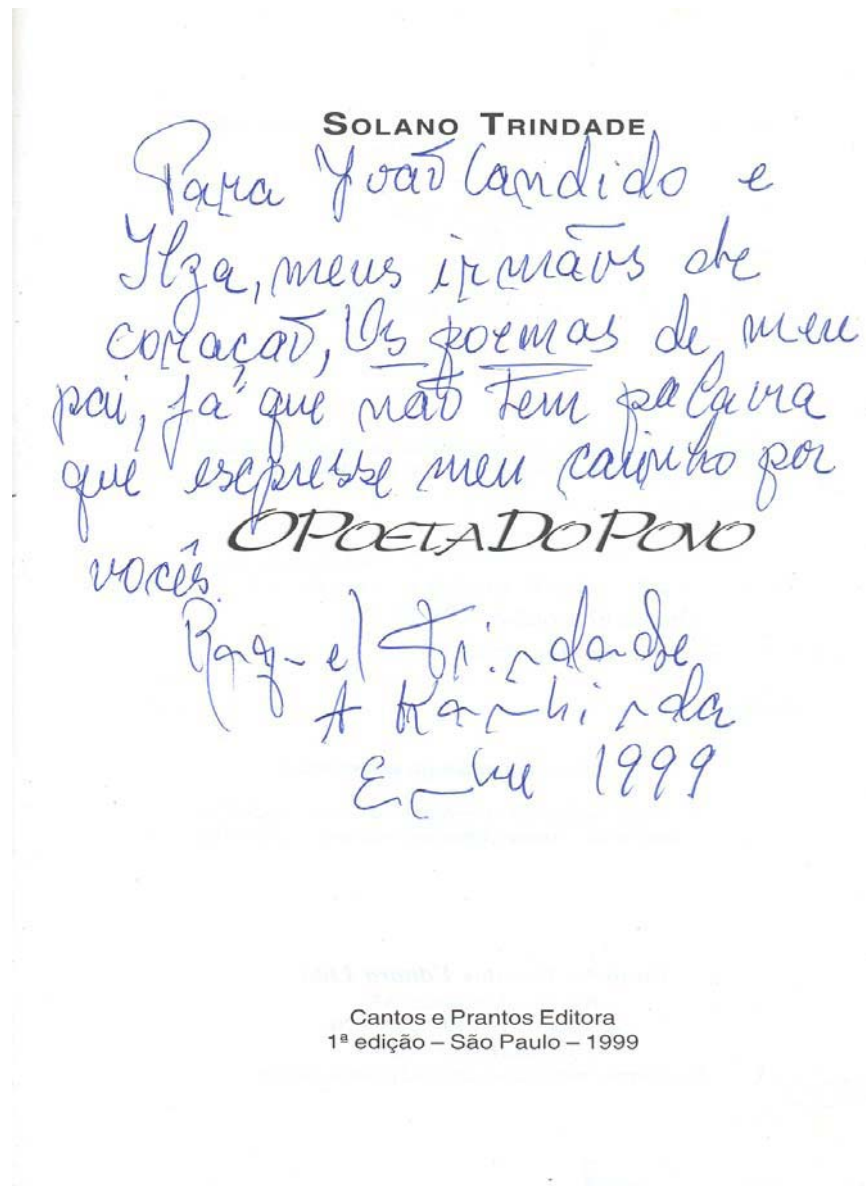 SOLANO TRINDADE
Para João Candido e
Ilza, meus irmãos de
coração, Os poemas de meu
pai, já que não tem palavra
que espresse meu carinho por
OPOETADOPOVO
vocês.
Raquel Trindade
A Kambinda
Embu 1999
Cantos e Prantos Editora
1ª edição – São Paulo – 1999